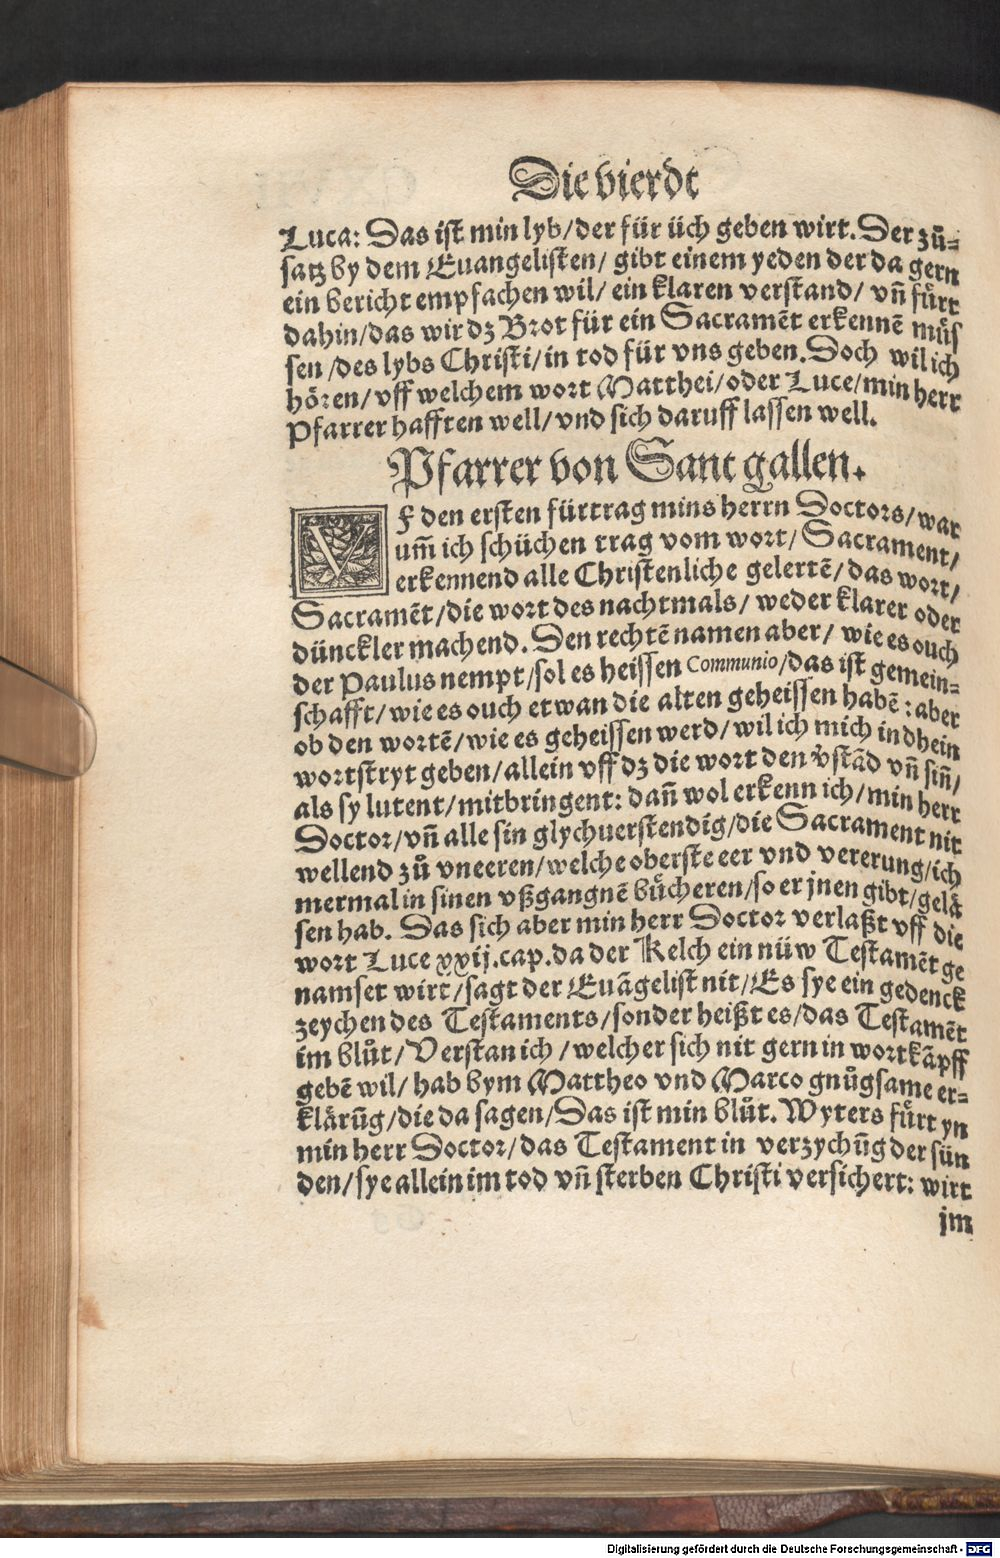 Die vierdt
Luca: Das ist min lyb/der für üch geben wirt. Der zů⸗
satz by dem Euangelisten/ gibt einem yeden der da gern
ein bericht empfachen wil/ ein klaren verstand/ vñ fürt
dahin/das wir dz Brot für ein Sacramēt erkennē müs
sen/des lybs Christi/in tod für vns geben. Doch wil ich
hören/vff welchem wort Matthei/oder Luce/min herr
Pfarrer hafften well/vnd sich daruff lassen well.
Pfarrer von Sant gallen.
VF den ersten fürtrag mins herrn Doctors/war
um̃ ich schüchen trag vom wort/ Sacrament/
erkennend alle Christenliche gelertē/das wort/
Sacramēt/die wort des nachtmals/ weder klarer oder
dünckler machend. Den rechtē namen aber/ wie es ouch
der Paulus nempt/sol es heissen Communio/das ist gemein⸗
schafft/wie es ouch etwan die alten geheissen habē: aber
ob den wortē/wie es geheissen werd/wil ich mich in dhein
wortstryt geben/allein vff dz die wort den v̄stād vñ siñ/
als sy lutent/mitbringent: dañ wol erkenn ich/min herr
Doctor/vñ alle sin glychuerstendig/die Sacrament nit
wellend zů vneeren/welche oberste eer vnd vererung/ich
mermal in sinen vßgangnē bücheren/so er jnen gibt/gelä
sen hab. Das sich aber min herr Doctor verlaßt vff die
wort Luce xxij.cap.da der Kelch ein nüw Testamēt ge
namset wirt/sagt der Euāgelist nit/Es sye ein gedenck
zeychen des Testaments/sonder heißt es/das Testamēt
im blůt/Verstan ich/welcher sich nit gern in wortkāpff
gebē wil/ hab bym Mattheo vnd Marco gnůgsame er⸗
klärūg/die da sagen/Das ist min blůt. Wyters fürt yn
min herr Doctor/das Testament in verzychūg der sün
den/sye allein im tod vñ sterben Christi versichert: wirt
jm
Digitalisierung gefördert durch die Deutsche Forschungsgemeinschaft - DFG